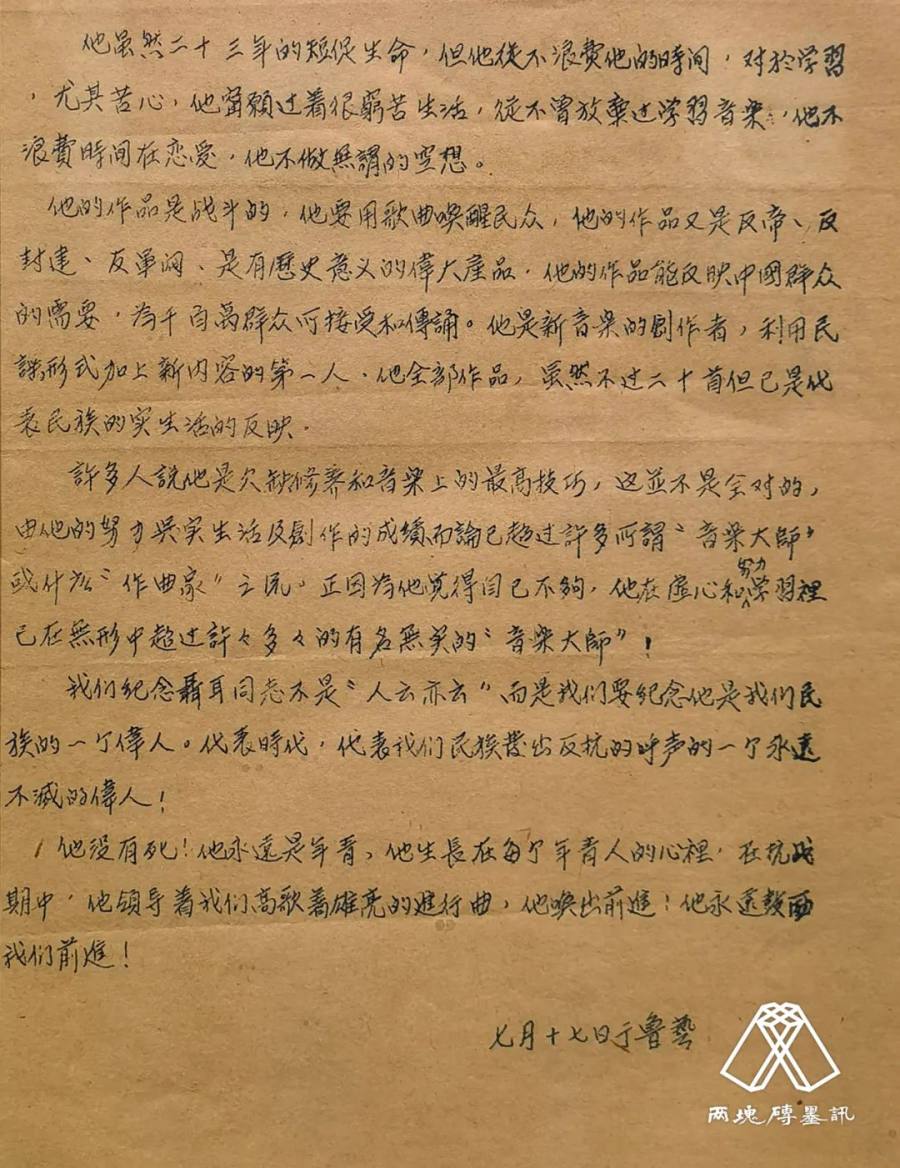 他虽然二十三年的短促生命，但他從不浪費他的時间，对於学習
，尤其苦心，他甯願过着很窮苦生活，從不曾放棄过学習音楽，他不
浪費時间在恋爱，他不做無謂的空想。
他的作品是战斗的，他要用歌曲唤醒民众，他的作品又是反帝、反
封建、反军阀、是有歷史意义的偉大產品，他的作品能反映中國群众
的需要，為千百萬群众所接受和傳誦。他是新音楽的創作者，利用民
謡形式加上新内容的第一人，他全部作品，虽然不过二十首但已是代
表民族的实生活的反映．
許多人説他是欠缺修养和音楽上的最高技巧，这並不是全对的，
由他的努力與实生活及創作的成績而論已超过許多所謂〝音楽大師〞
或什么〝作曲家〞之流。正因為他覚得自己不夠，他在虚心和努力学習裡
已在無形中超过許々多々的有名無实的〝音楽大師〞！
我们纪念聶耳同志不是〝人云亦云〞而是我们要纪念他是我们民
族的一个偉人。代表時代，代表我们民族發出反抗的呼声的一个永遠
不滅的偉人！
他没有死！他永遠是年青，他生長在每个年青人的心裡，在抗战
期中，他領导着我们高歌着雄亮的進行曲，他唤出前進！他永遠鼓励
我们前進！
七月十七日于魯藝
两塊磚墨訊